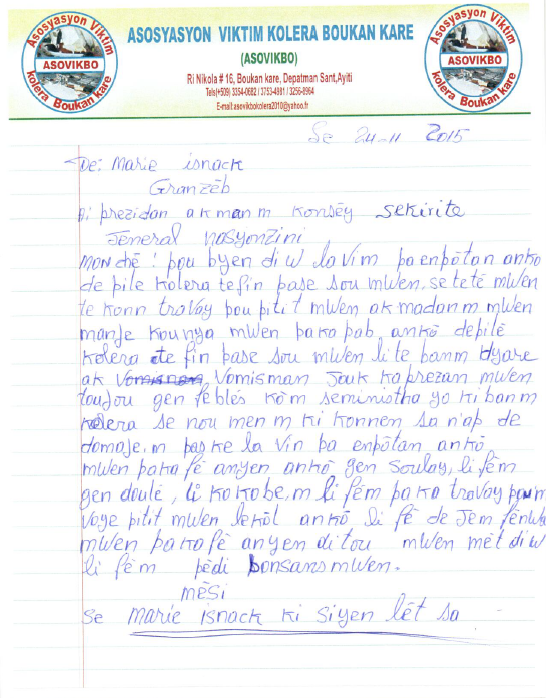 ASOSYASYON VIKTIM KOLERA BOUKAN KARE
(ASOVIKBO)
Ri Nikola # 16, Boukan kare, Depatmam Sant, Ayiti
Tels(+509) 3354-0682 / 3753-4991 / 3256-8964
E-mail:asovikbokolera2010@yahoo.fr
Asosyasyon Viktim
ASOVIKBO
kolera Boukan kare
Asosyasyon Viktim
ASOVIKBO
kolera Boukan kare
Se 24-11 2015
De: Marie isnack
Granzèb
Ai prezidan ak manm konsèy sekirite
Jeneral nasyonzini
Monchè ! pou byen di w la vim pa enpòtan ankò
de pile kolera te fin pase sou mwen, se te tè mwen
te konn travay pou pitit mwen ak madanm mwen
manje kounya mwen pa ka pab ankò depile
kolera te fin pase sou mwen li te banm dyare
ak Vomisman Jouk ka prezan mwen
toujou gen feblès kòm se ministha yo ki ban m
kolera se nou menm ki konnen sa n'ap de
domaje, m paske la vin pa enpòtan ankò
mwen paka fè anyen ankò gen Soulay, li fèm
gen doulè, li kokobe, m li fèm pa ka travay pou m
voye pitit mwen lekòl ankò li fè de Jem fènwa
mwen pa ka fè anyen ditou mwen mèt di w
li fèm pèdi bonsans mwen.
mèsi
Se marie isnack ki siyen lèt sa